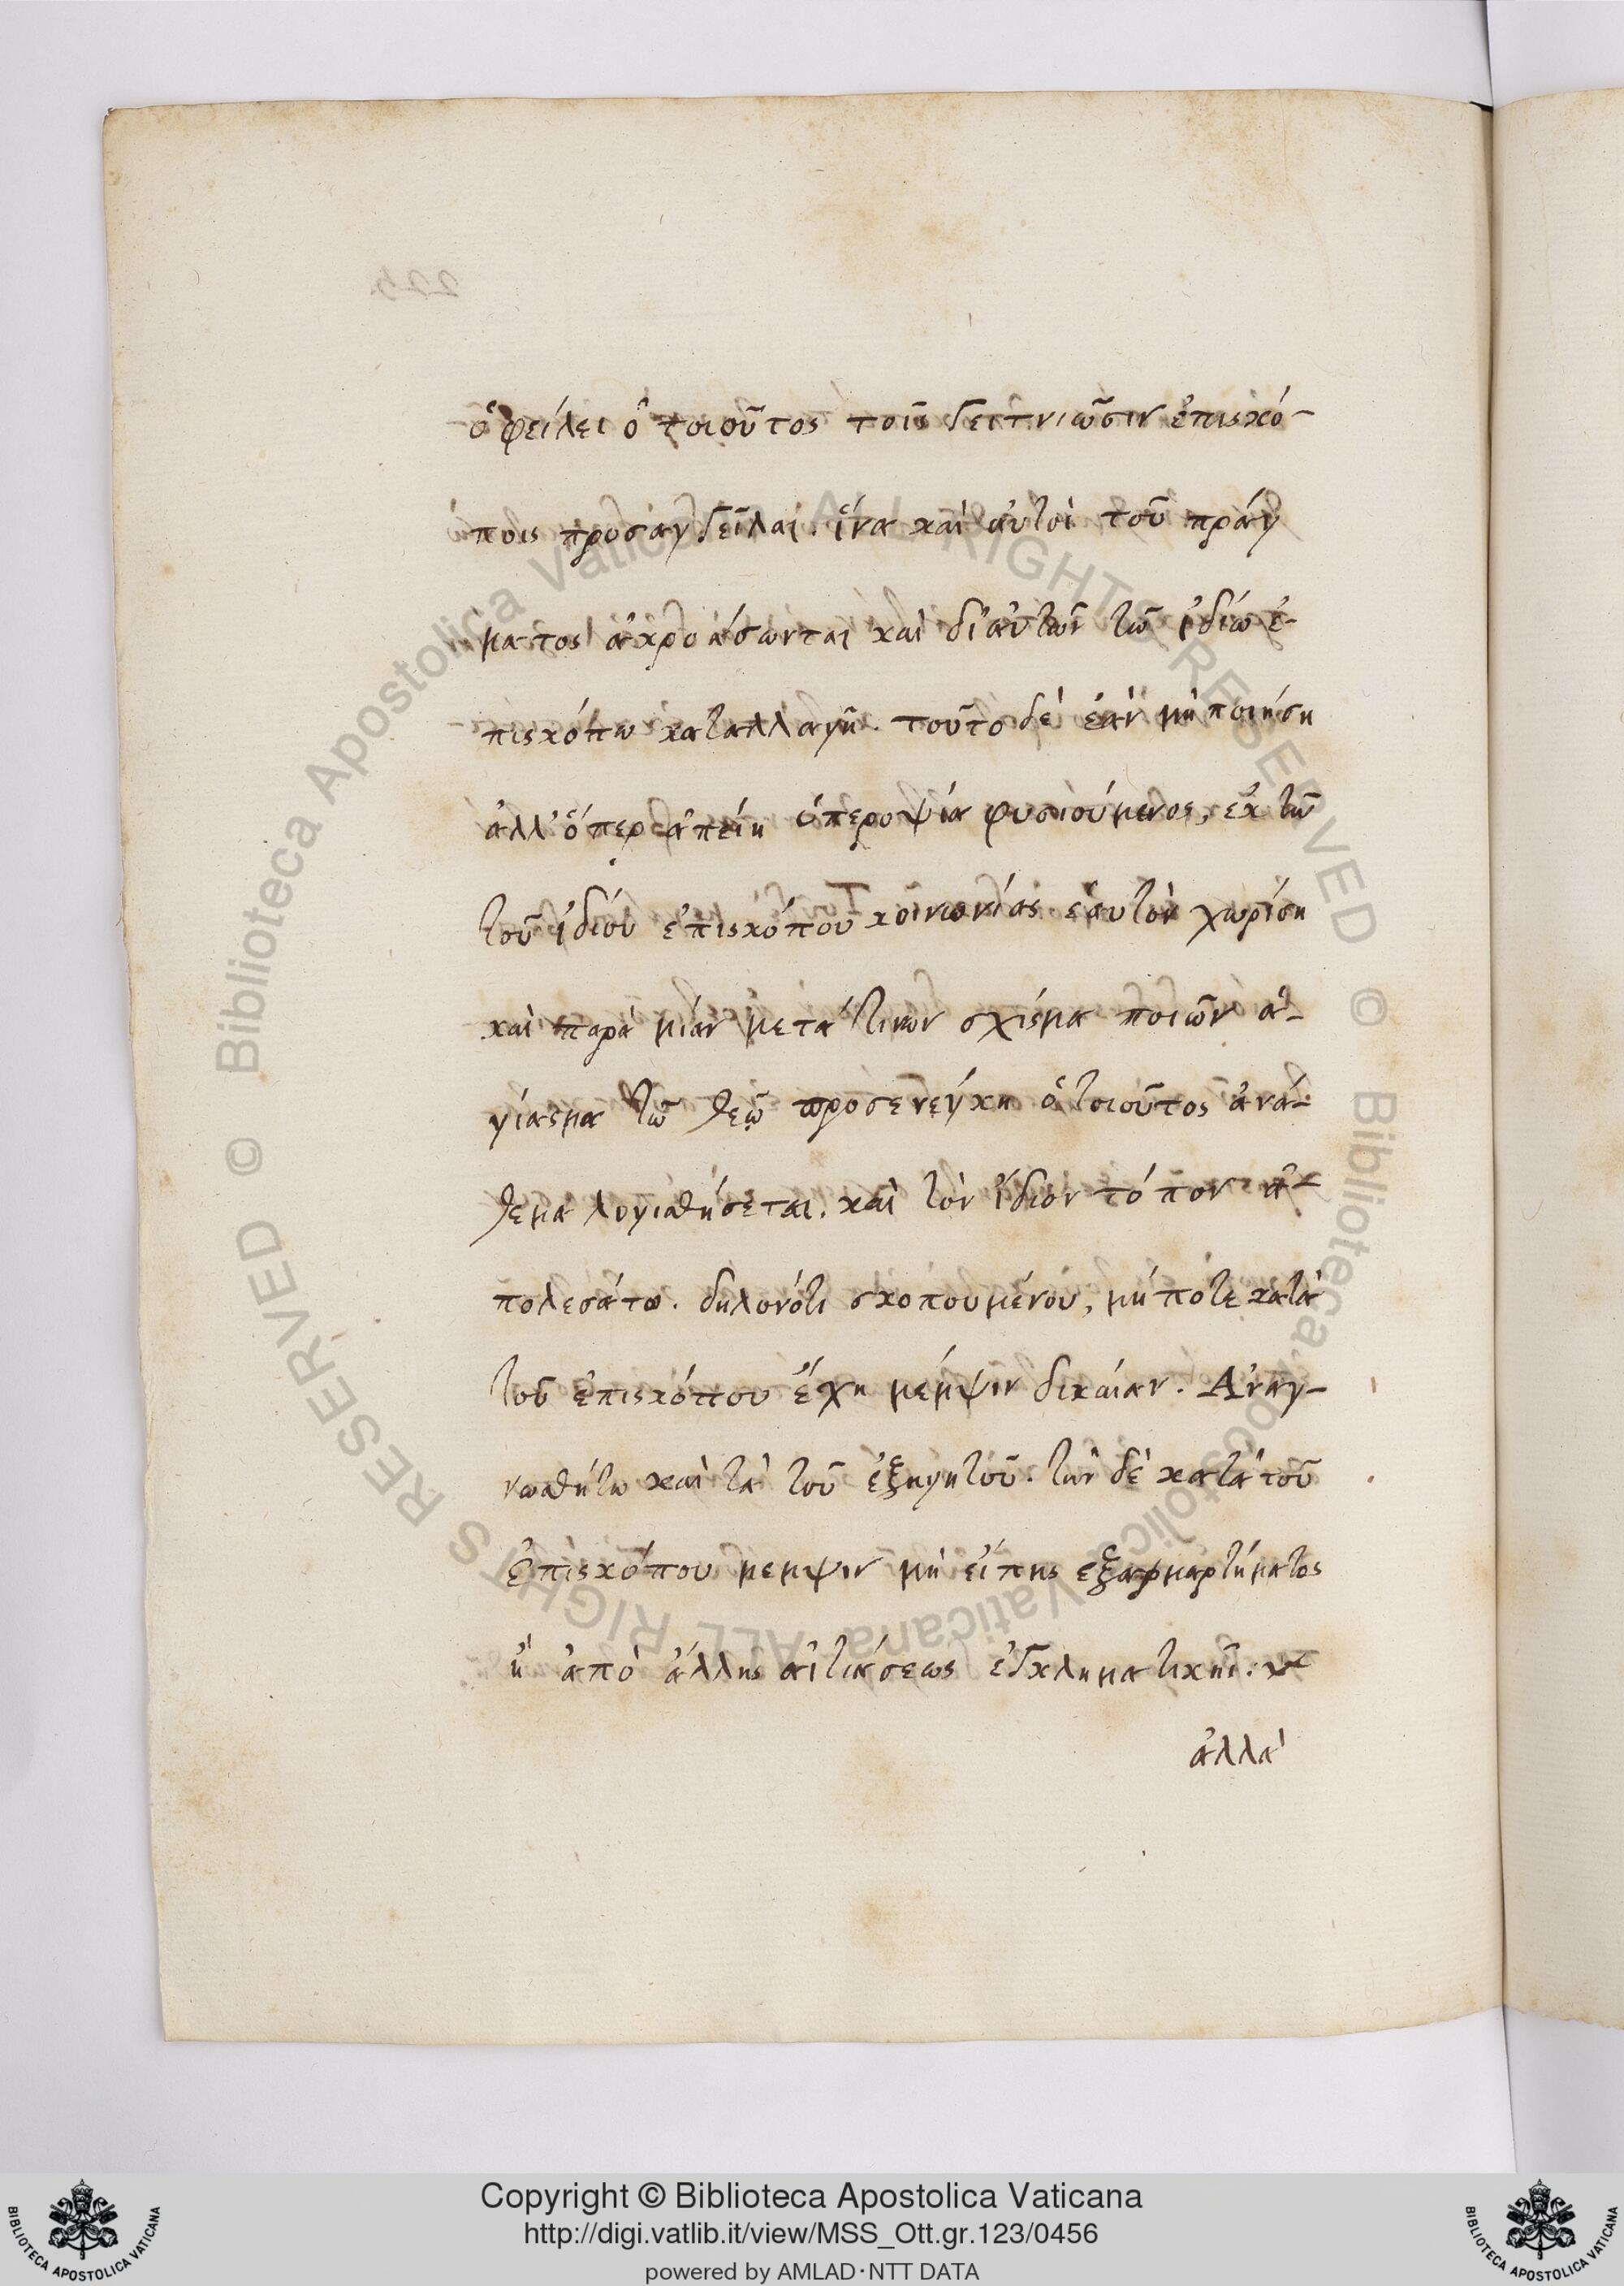 ὀφείλει ὁ τοιοῦτος τοῖς γειτνιῶσιν ἐπισκό-
ποις προσαγγεῖλαι. ἵνα καὶ αὐτοὶ τοῦ πράγ
ματος ἀκροάσωνται καὶ δι' αὐτῶν τῶ ἰδίω ἐ-
πισκόπω καταλλαγῆ. τοῦτο δὲ ἐὰν μὴ ποιήση
ἀλλ' ὅπερ ἀπείη ὑπεροψία φυσιούμενος, ἐκ τῶ
τοῦ ἰδίου ἐπισκόπου κοινωνίας ἑαυτὸν χωρίση
καὶ παρὰ μίαν μετά τινων σχίσμα ποιῶν ἁ-
γίασμα τῶ θεῶ προσενέγκη ὁ τοιοῦτος ἀνά-
θεμα λογισθήσεται. καὶ τὸν ἴδιον τόπον ἀ-
πολεσάτω. δηλονότι σκοπουμένου, μή ποτε κατὰ
τοῦ ἐπισκόπου ἔχη μέμψιν δικαίαν. Αναγ-
νωσθήτω καὶ τὰ τοῦ ἐξηγητοῦ. τὴν δὲ κατὰ τοῦ
ἐπισκόπου μεμψιν μὴ εἴπης εξ αμαρτήματος
ἢ ἀπὸ ἄλλης αἰτιάσεως ἐγκληματικῆς.
ἀλλὰ
Copyright © Biblioteca Apostolica Vaticana
http://digi.vatlib.it/view/MSS_Ott.gr.123/0456
powered by AMLAD·NTT DATA
BIBLIOTECA APOSTOLICA VATICANA
BIBLIOTECA APOSTOLICA VATICANA
© Biblioteca Apostolica Vaticana ALL RIGHTS RESERVED
© Biblioteca Apostolica Vaticana ALL RIGHTS RESERVED